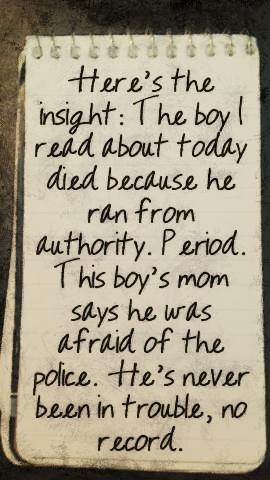 Here's the
insight: The boy I
read about today
died because he
ran from
authority. Period.
This boy's mom
says he was
afraid of the
police. He's never
been in trouble, no
record.